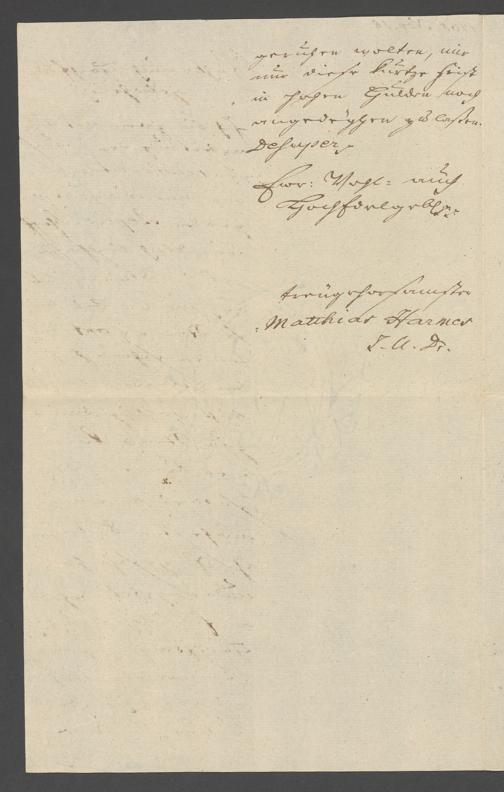 geruhen wolten, mir
nur diese kurtze frist
in hohen Gulden noch
angedeyhen zu laßen.
Desuper
Ewr: Wohl= auch
Hochfdelgeb
treügehorsamster
Matthias Harmes